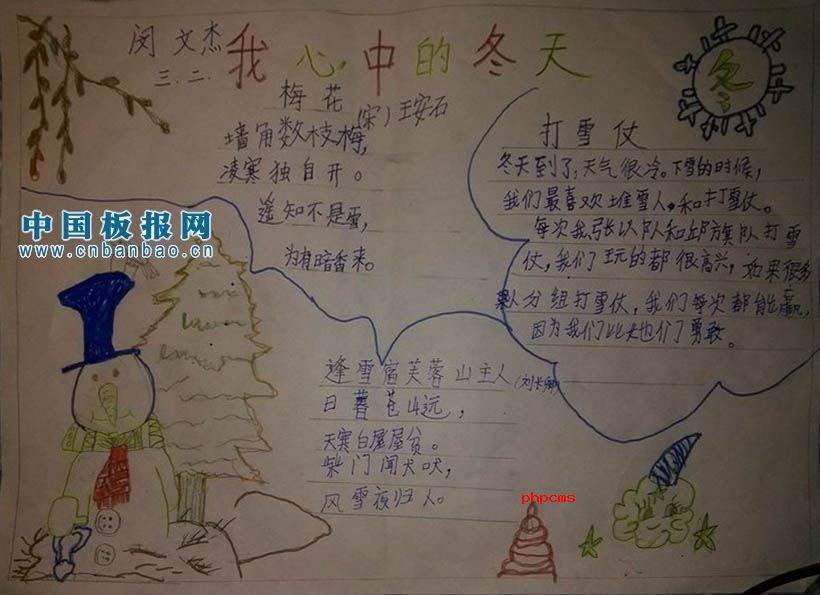 闵文杰
三.二.
我心中的冬天
冬
梅花
(宋)王安石
墙角数枝梅,
凌寒独自开。
遥知不是雪,
为有暗香来。
打雪仗
冬天到了,天气很冷。下雪的时候,
我们最喜欢堆雪人,和打雪仗。
每次我张以队和邱旗队打雪
仗,我们玩的都很高兴,如果很多
队分组打雪仗,我们每次都能赢,
因为我们比他们勇敢。
逢雪宿芙蓉山主人(刘长卿)
日暮苍山远,
天寒白屋屋贫。
柴门闻犬吠,
风雪夜归人。
中国板报网
www.cnbanbao.cn
phpcms